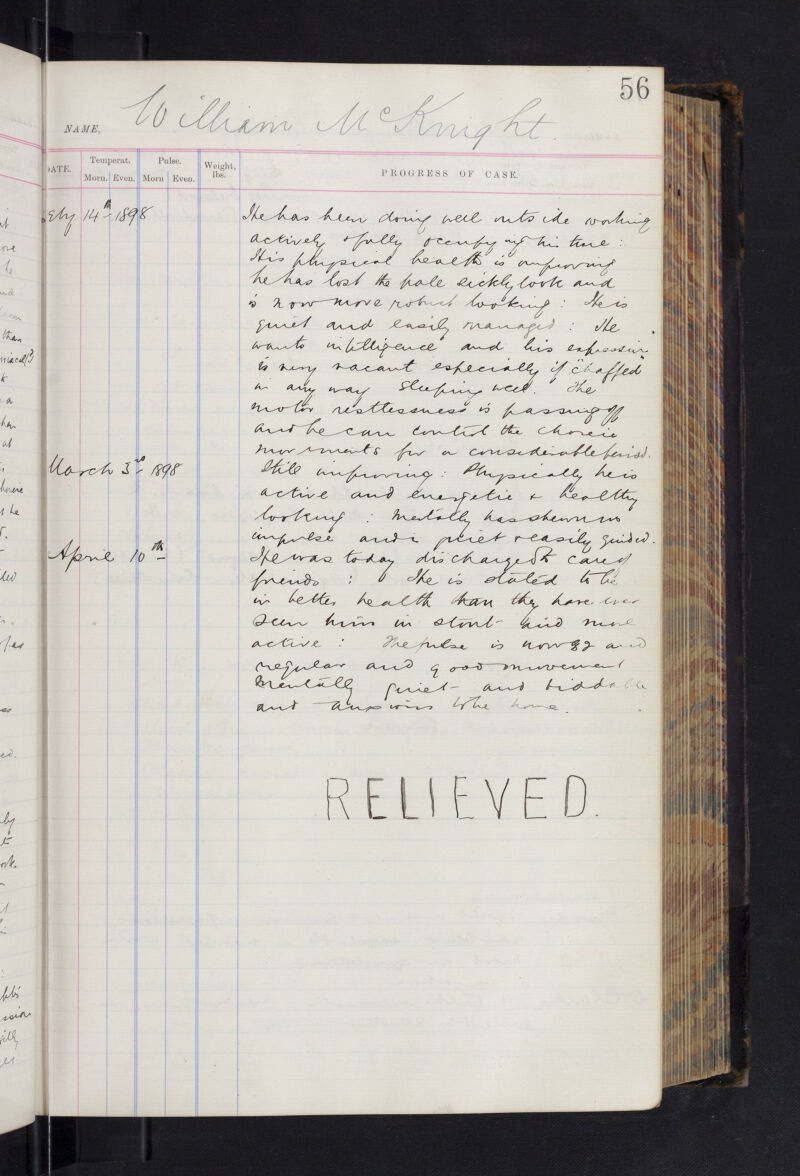 56
NAME, William McKnight.
DATE. Temperat. Pulse. Weight, lbs. PROGRESS OF CASE.
Morn. Even. Morn Even.
Feby 14th 1898 He has been doing well outside working
actively & fully occupying his time :
His physical health is improving
he has lost the pale sickly look and
is now more robust looking : He is
quiet and easily managed : He
wants intelligence and his expression
is very vacant especially if "chaffed"
in any way Sleeping well. The
motor restlessness is passing off
and he can control the choreic
movements for a considerable period.
March 3rd 1898 Still improving : Physically he is
active and energetic & healthy
looking : Mentally has shewn no
impulse and is quiet & easily guided.
April 10th He was today discharged to care of
friends : He is stated to be
in better health than they have ever
seen him in stout and more
active : The pulse is now 82 and
regular and good movement
Mentally quiet and biddable
and anxious to be home.
RELIEVED.